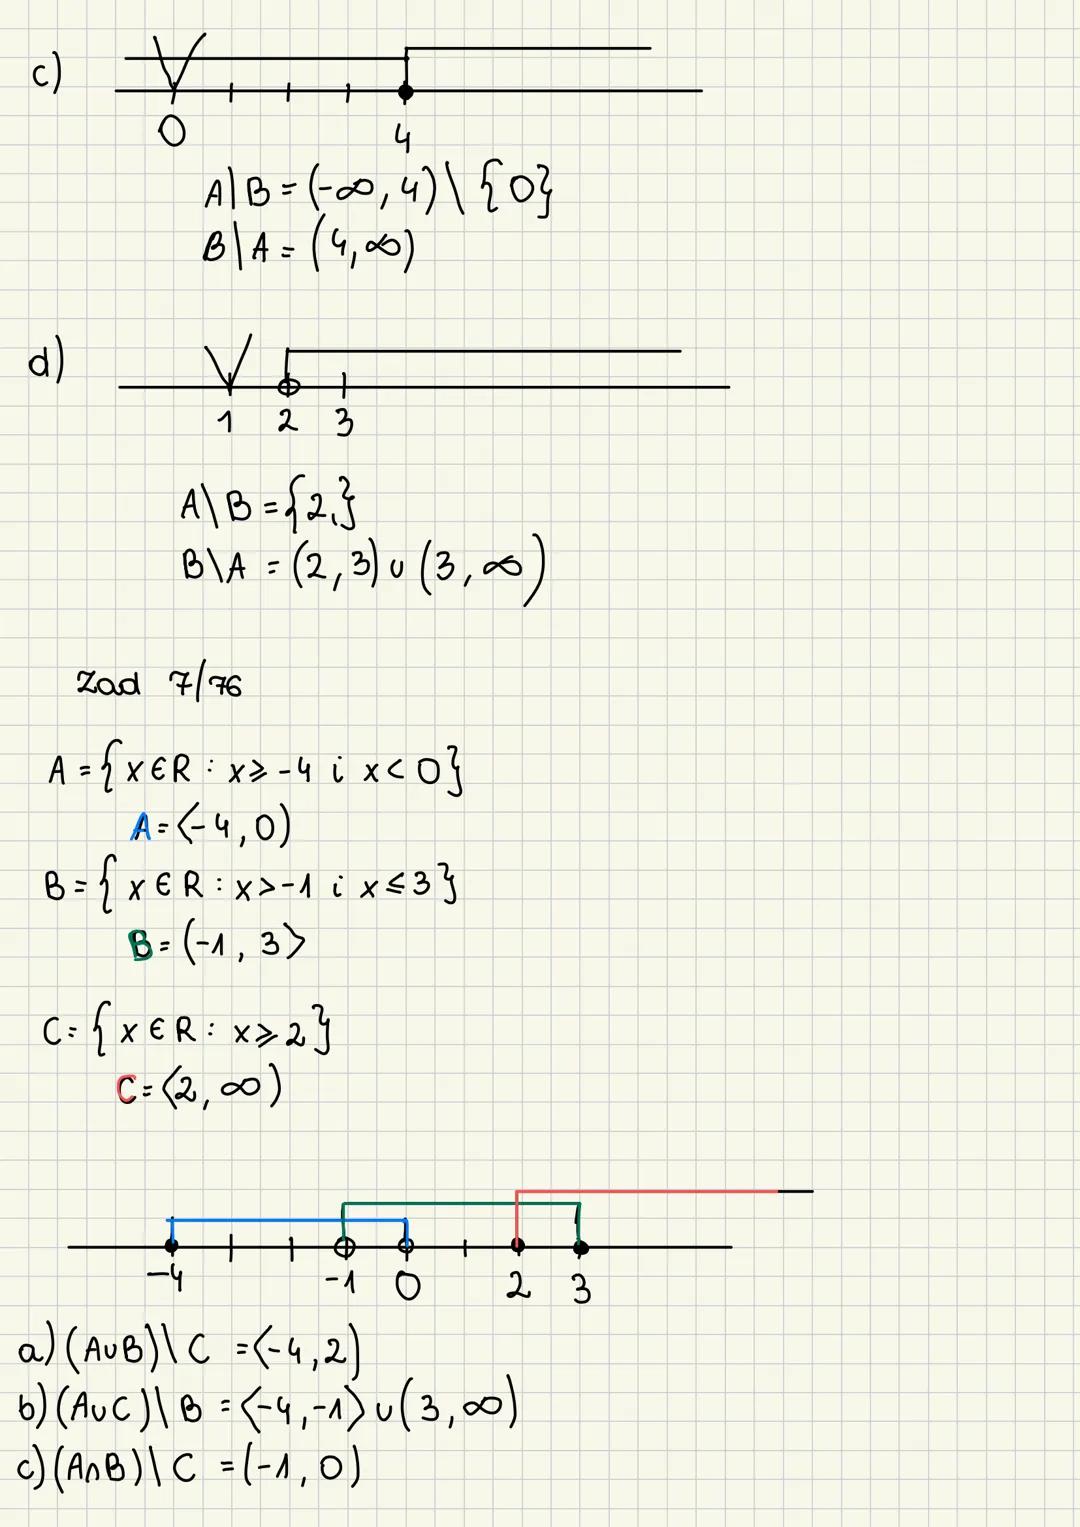 c)
0 4
A\B = (-∞, 4) \ {0}
B\A = (4, ∞)
d)
1 2 3
A\B = {2,}
B\A = (2, 3) ∪ (3, ∞)
Zad 7/76
A = {x∈R : x⩾-4 i x<0}
A = ⟨-4, 0)
B = {x∈R : x>-1 i x⩽3}
B = (-1, 3⟩
C = {x∈R : x⩾2}
C = ⟨2, ∞)
-4 -1 0 2 3
a) (A∪B)\C = ⟨-4, 2)
b) (A∪C)\B = ⟨-4, -1⟩ ∪ (3, ∞)
c) (A∩B)\C = (-1, 0)